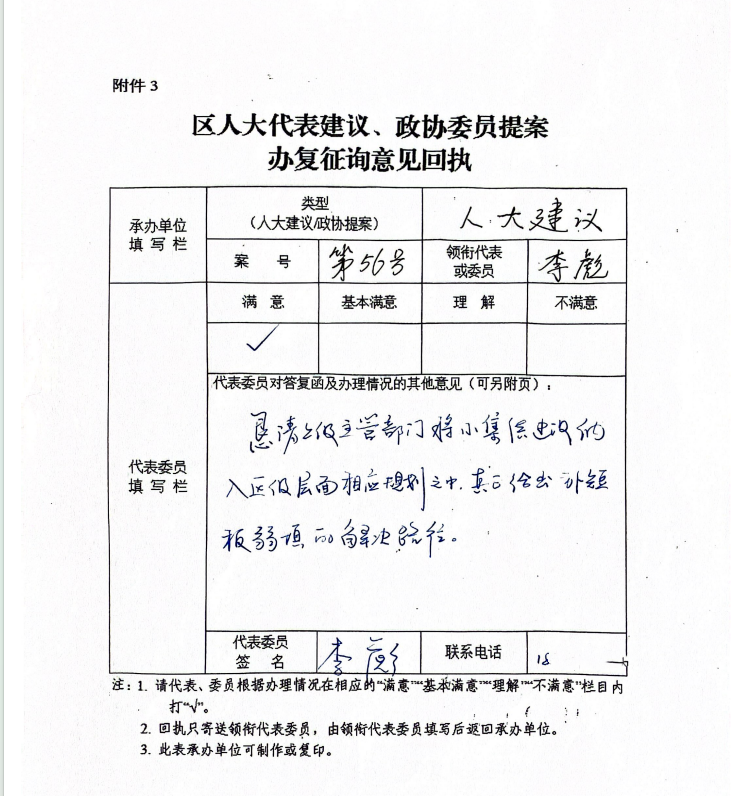 附件 3
区人大代表建议、政协委员提案
办复征询意见回执
承办单位
填 写 栏
类型
（人大建议/政协提案）
人大建议
案 号
第56号
领衔代表
或委员
李彪
代表委员
填 写 栏
满 意
基本满意
理 解
不满意
✓
代表委员对答复函及办理情况的其他意见（可另附页）：
恳请上级主管部门将小集建设纳
入区级层面相应规划之中，真正给出补短
板弱项的解决路径。
代表委员
签 名
李彪
联系电话
18
注：1. 请代表、委员根据办理情况在相应的“满意”“基本满意”“理解”“不满意”栏目内
打“√”。
2. 回执只寄送领衔代表委员，由领衔代表委员填写后返回承办单位。
3. 此表承办单位可制作或复印。